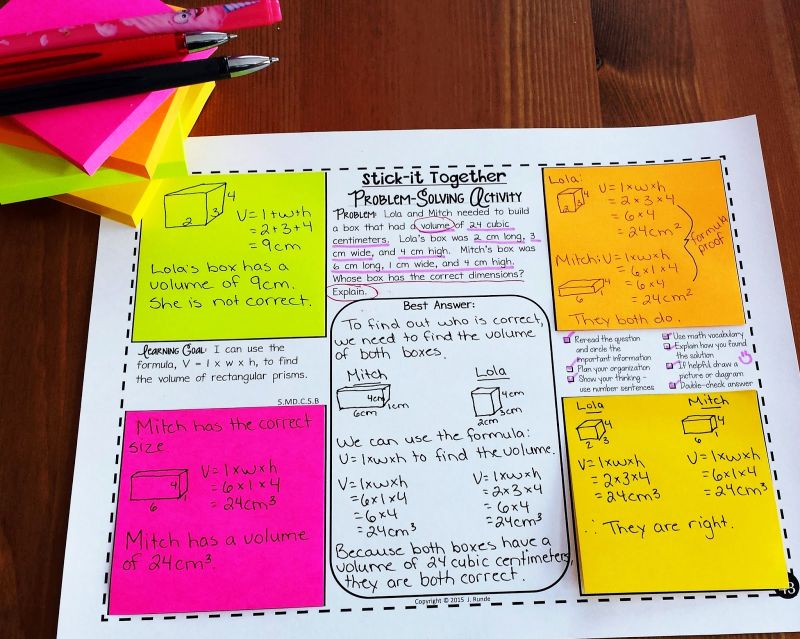 Stick-it Together
Problem-Solving Activity
Problem: Lola and Mitch needed to build
a box that had a volume of 24 cubic
centimeters. Lola's box was 2 cm long, 3
cm wide, and 4 cm high. Mitch's box was
6 cm long, 1 cm wide, and 4 cm high.
Whose box has the correct dimensions?
Explain.
4
3
2
V= l+w+h
= 2+3+4
= 9cm
Lola's box has a
volume of 9cm.
She is not correct.
Learning Goal: I can use the
formula, V = l x w x h, to find
the volume of rectangular prisms.
5.MD.C.5.B
Mitch has the correct
size
4
1
6
V= l×w×h
= 6×1×4
= 24cm³
Mitch has a volume
of 24cm³.
Best Answer:
To find out who is correct,
we need to find the volume
of both boxes.
Mitch
4cm
1cm
6cm
Lola
4cm
3cm
2cm
We can use the formula:
V= l×w×h to find the volume.
V= l×w×h
= 6×1×4
= 6×4
= 24cm³
V= l×w×h
= 2×3×4
= 6×4
= 24cm³
Because both boxes have a
volume of 24 cubic centimeters,
they are both correct.
Lola:
4
2
3
V= l×w×h
= 2×3×4
= 6×4
= 24cm²
Mitch:
V= l×w×h
= 6×1×4
= 6×4
= 24cm²
4
1
6
formula
proof
They both do.
Reread the question
and circle the
important information
Plan your organization
Show your thinking -
use number sentences
Use math vocabulary
Explain how you found
the solution
If helpful draw a
picture or diagram
Double-check answer
Lola
4
2
3
V= l×w×h
= 2×3×4
= 24cm³
Mitch
4
6
1
V= l×w×h
= 6×1×4
= 24cm³
∴ They are right.
Copyright © 2015 J. Runde
43